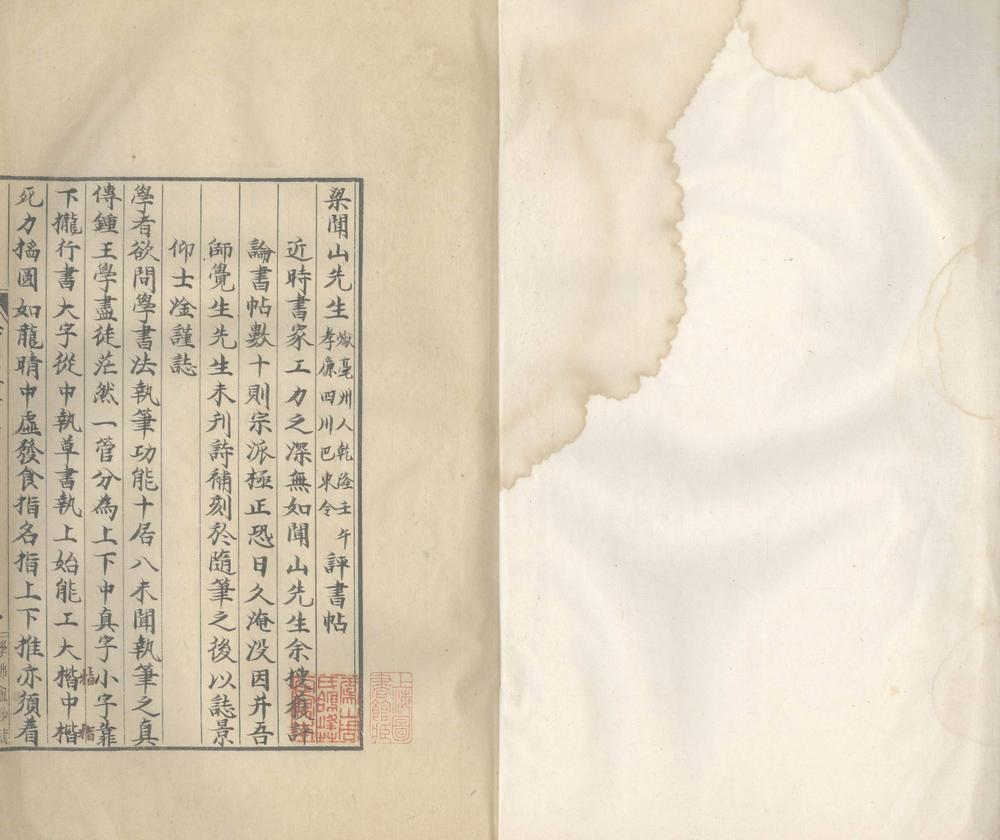 梁聞山先生巘亳州人乾隆壬午孝廉四川巴東令評書帖
近時書家工力之深無如聞山先生余搜獲評
論書帖數十則宗派極正恐日久淹没因并吾
師覺生先生未刊詩補刻於隨筆之後以誌景
仰士淦謹誌
學者欲問學書法執筆功能十居八未聞執筆之真
傳鍾王學盡徒茫然一管分為上下中真字小字靠
指
指
下攏行書大字從中執草書執上始能工大楷中楷
死力搦圓如龍睛中虛發食指名指上下推亦須着
上海圖書館藏